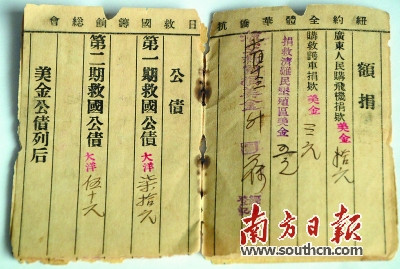 紐約全體華僑抗日救國籌餉總會
額捐
廣東人民購飛機捐欵美金拾元
購救護車捐欵美金三元
捐救濟難民墾殖區美金五元
公債
第一期救國公債大洋柒拾元
第二期救國公債大洋伍十元
美金公債列后
南方日報
www.southcn.com